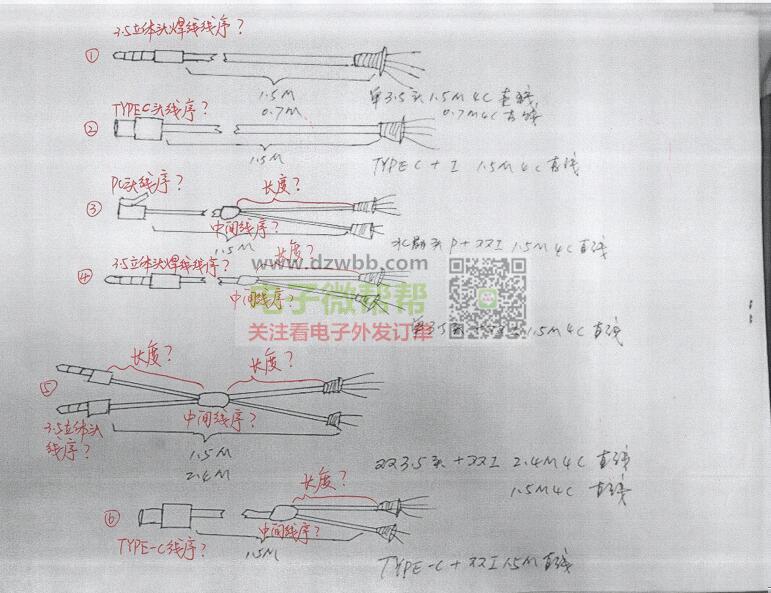 3.5立体头焊线线序?
①
1.5M
0.7M
单3.5头 1.5M 4C 直线
0.7M 4C 直线
TYPEC头线序?
②
1.5M
TYPE C + I 1.5M 4C 直线
PC头线序?
③
长度?
中间线序?
1.5M
水晶头 P+双I 1.5M 4C 直线
www.dzwbb.com
3.5立体头焊线线序?
长度?
④
中间线序?
电子微帮帮
关注看电子外发订单
单3.5头
1.5M 4C 直线
长度?
长度?
⑤
中间线序?
3.5立体头
线序?
1.5M
2.4M
双3.5头 + 双I 2.4M 4C 直线
1.5M 4C 直线
长度?
⑥
中间线序?
TYPE-C线序?
1.5M
TYPE-C + 双I 1.5M 直线